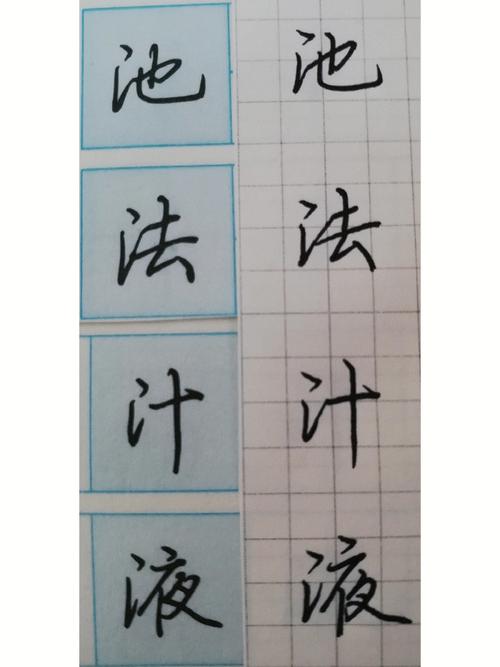 池 池
法 法
汁 汁
液 液